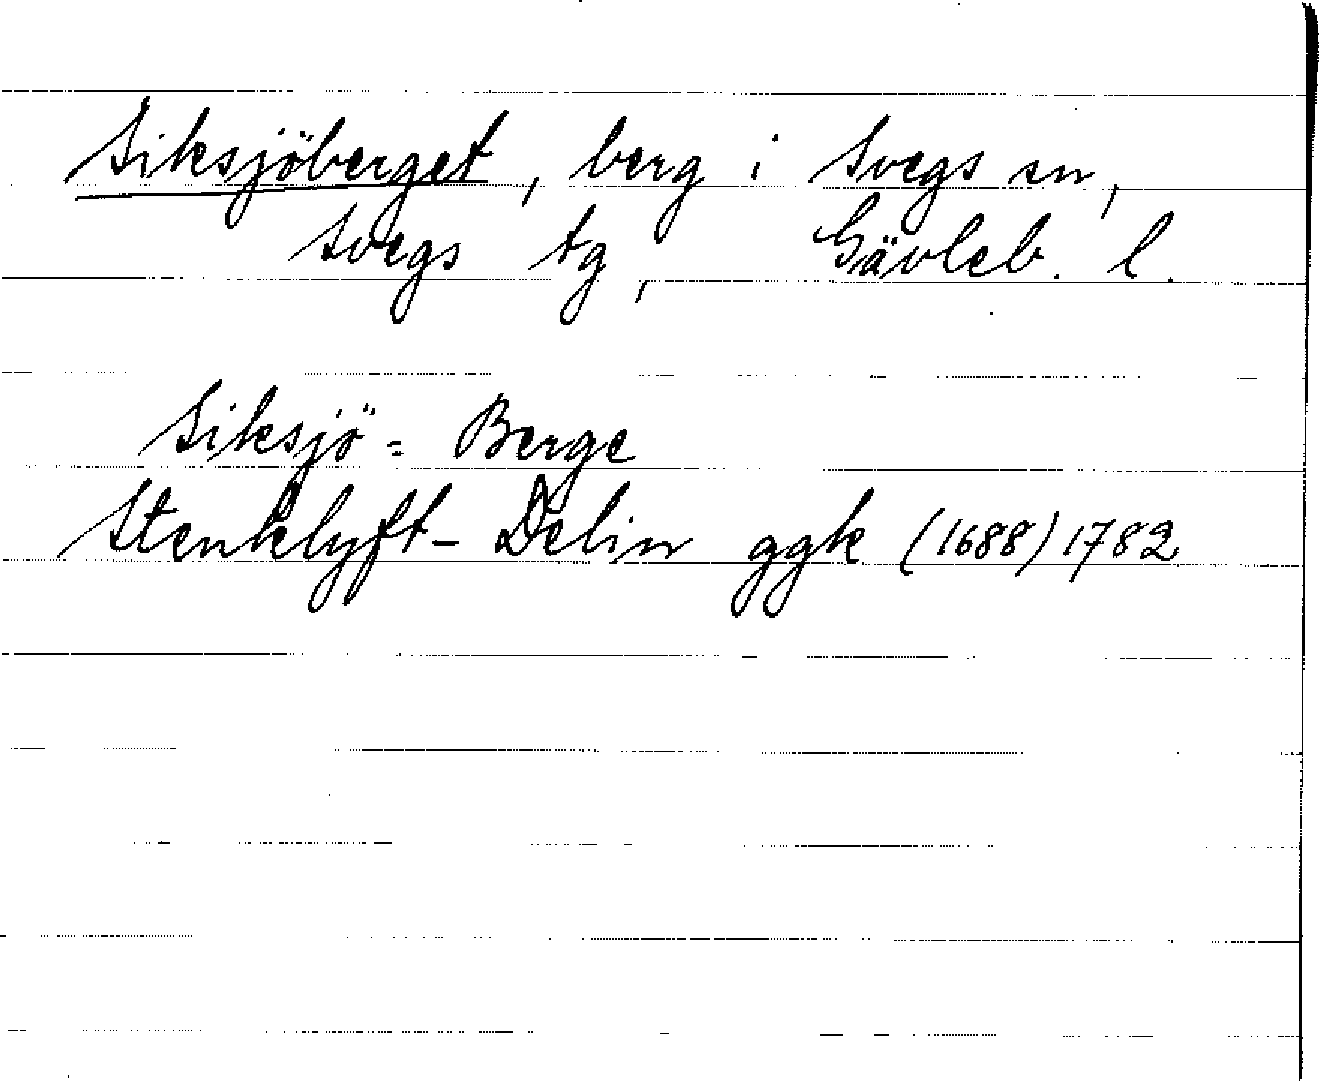 Siksjöberget, berg i Svegs sn,
Svegs tg, Gävleb. l.
Siksjö = Berge
Stenklyft - Delin ggk (1688) 1782